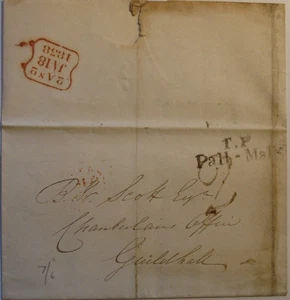 2 AN 2
JA 18
1838
T.P
Pall-Mall
B.W. Scott Esqr
Chamberlains Office
Guildhall
7/6